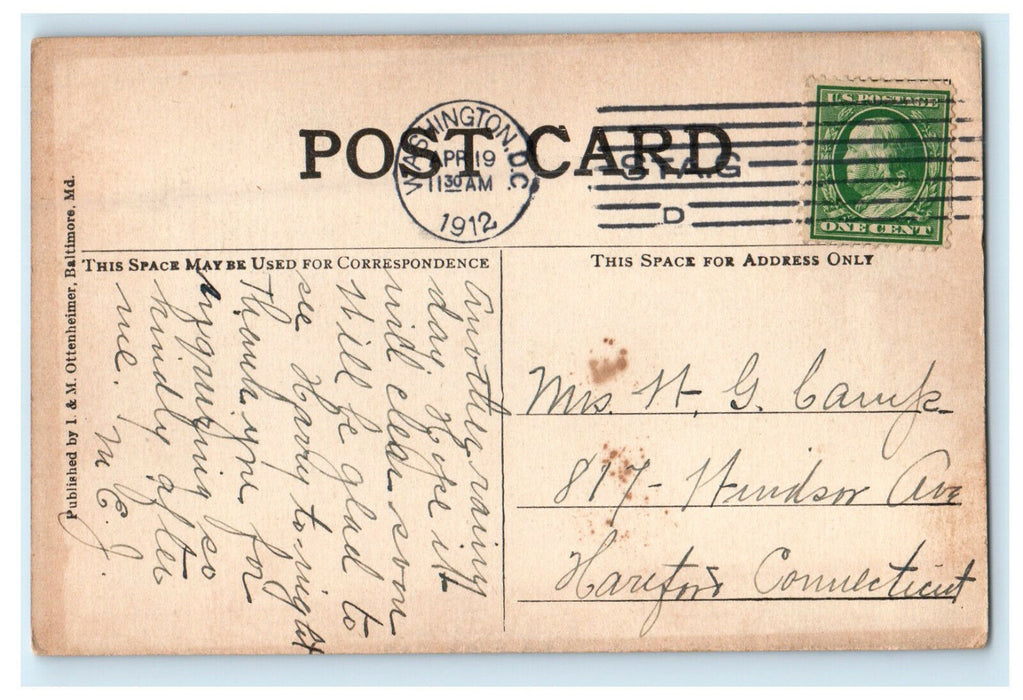 POST CARD
WASHINGTON, D.C.
APR 19
11 30 AM
1912
STA. G
D
U.S. POSTAGE
ONE CENT
THIS SPACE MAY BE USED FOR CORRESPONDENCE
THIS SPACE FOR ADDRESS ONLY
Published by I. & M. Ottenheimer, Baltimore, Md.
Another rainy
day. Hope it
will clear soon
Will be glad to
see Harry to-night
Thank you for
inquiring so
kindly after
me. M. E. J.
Mrs. H. G. Camp.
817 Windsor Ave
Hartford Connecticut